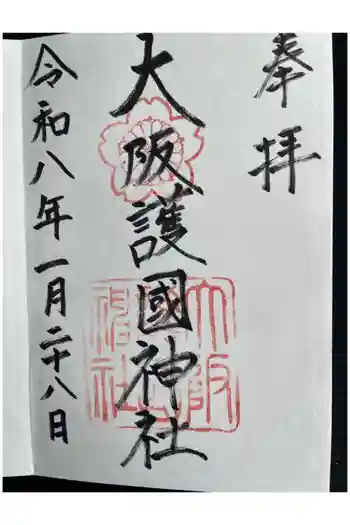 奉拝
大阪護國神社
令和八年一月二十八日